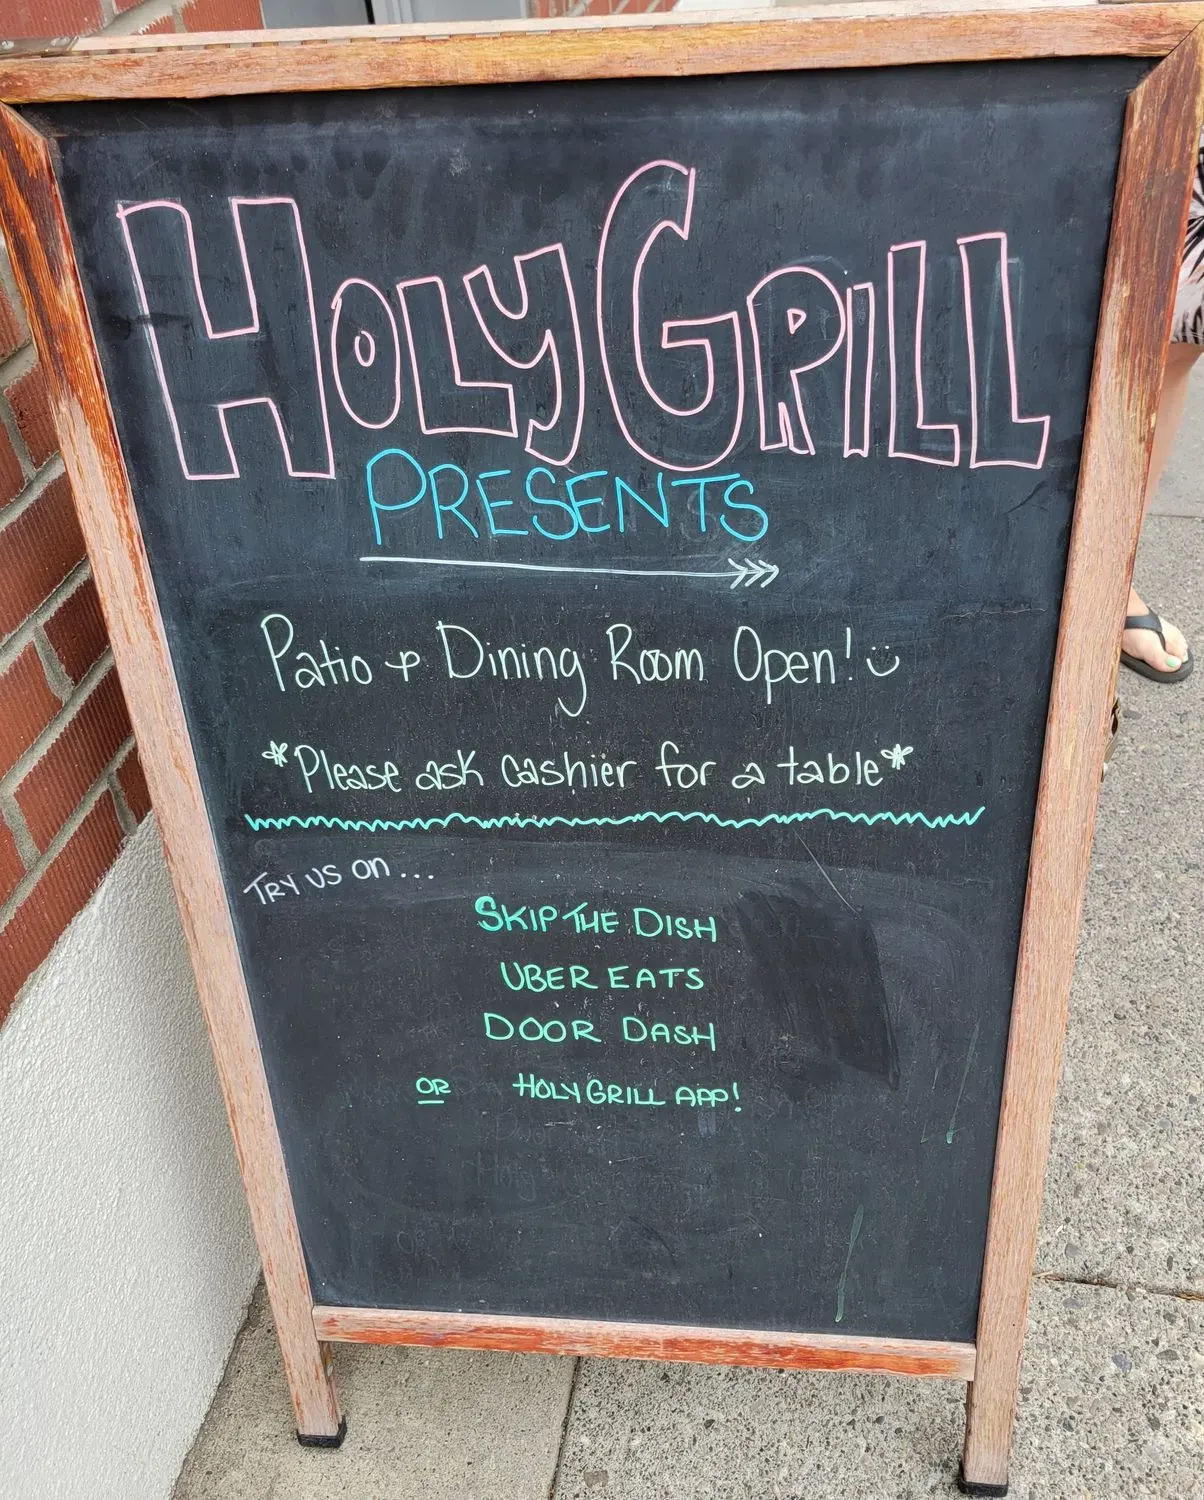 HOLY GRILL
PRESENTS
Patio + Dining Room Open! :)
*Please ask cashier for a table*
TRY US ON...
SKIP THE DISH
UBER EATS
DOOR DASH
OR HOLY GRILL APP!